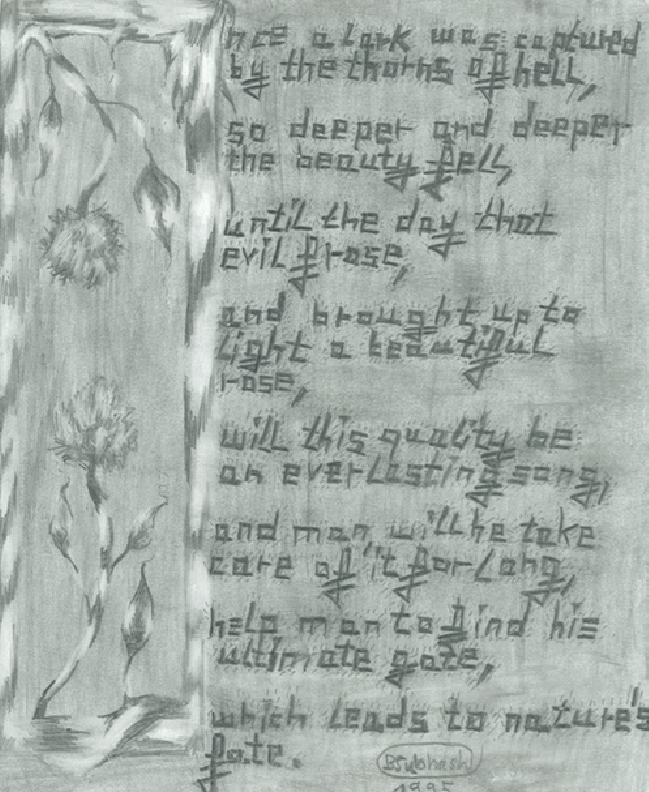 nce a lark was captured
by the thorns of hell,
so deeper and deeper
the beauty fell,
until the day that
evil frose,
and brought up to
light a beautiful
rose,
will this quality be
an everlasting song,
and man will he take
care of it for long,
help man to find his
ultimate gate,
which leads to nature's
fate.
BSubhash
1995